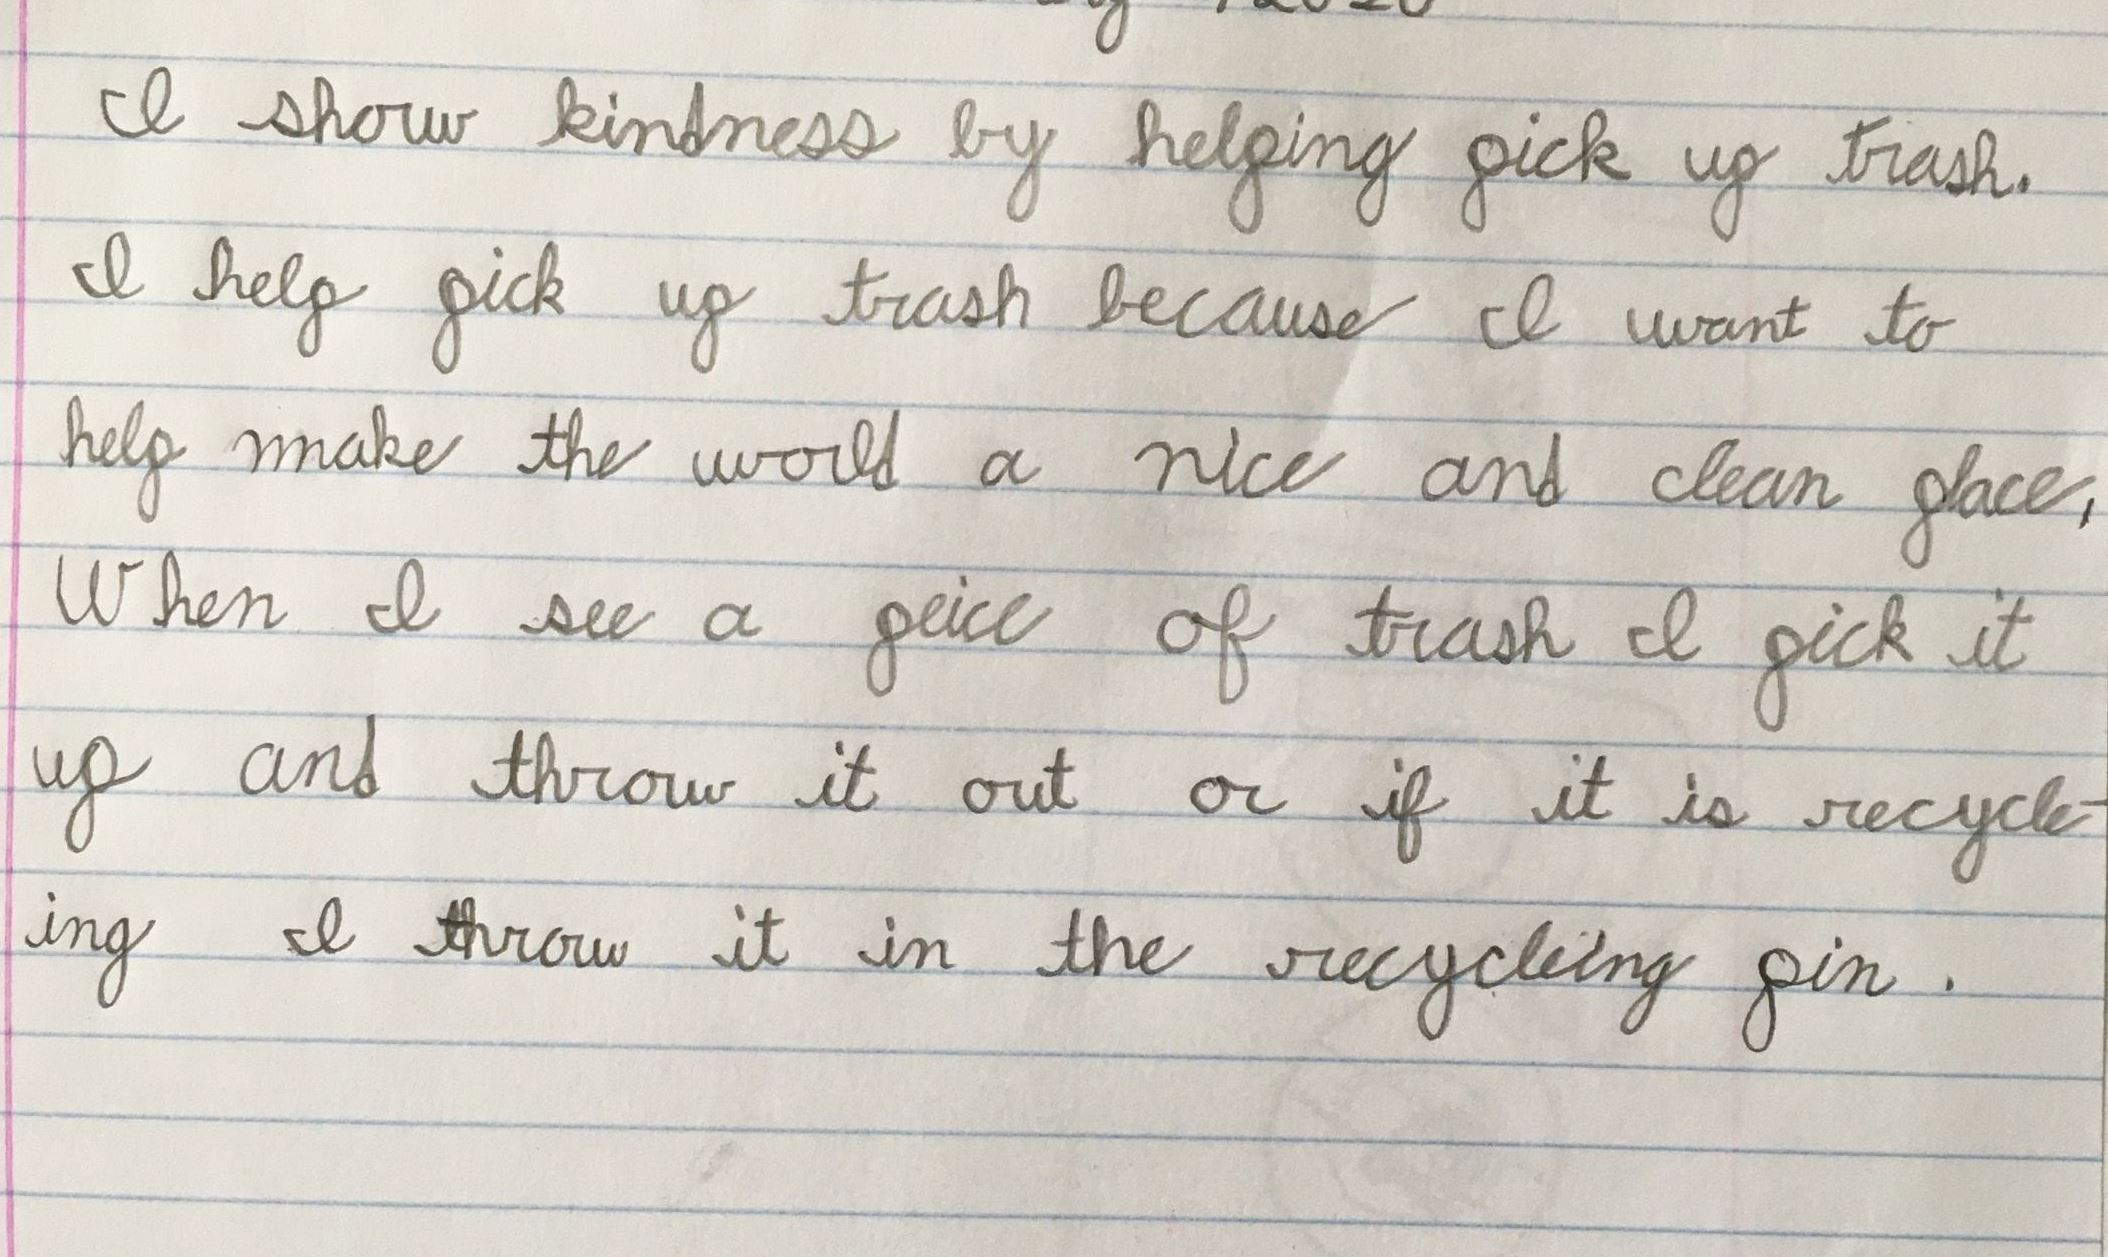 I show kindness by helping pick up trash.
I help pick up trash because I want to
help make the world a nice and clean place,
When I see a peice of trash I pick it
up and throw it out or if it is recycle-
ing I throw it in the recycleing pin.